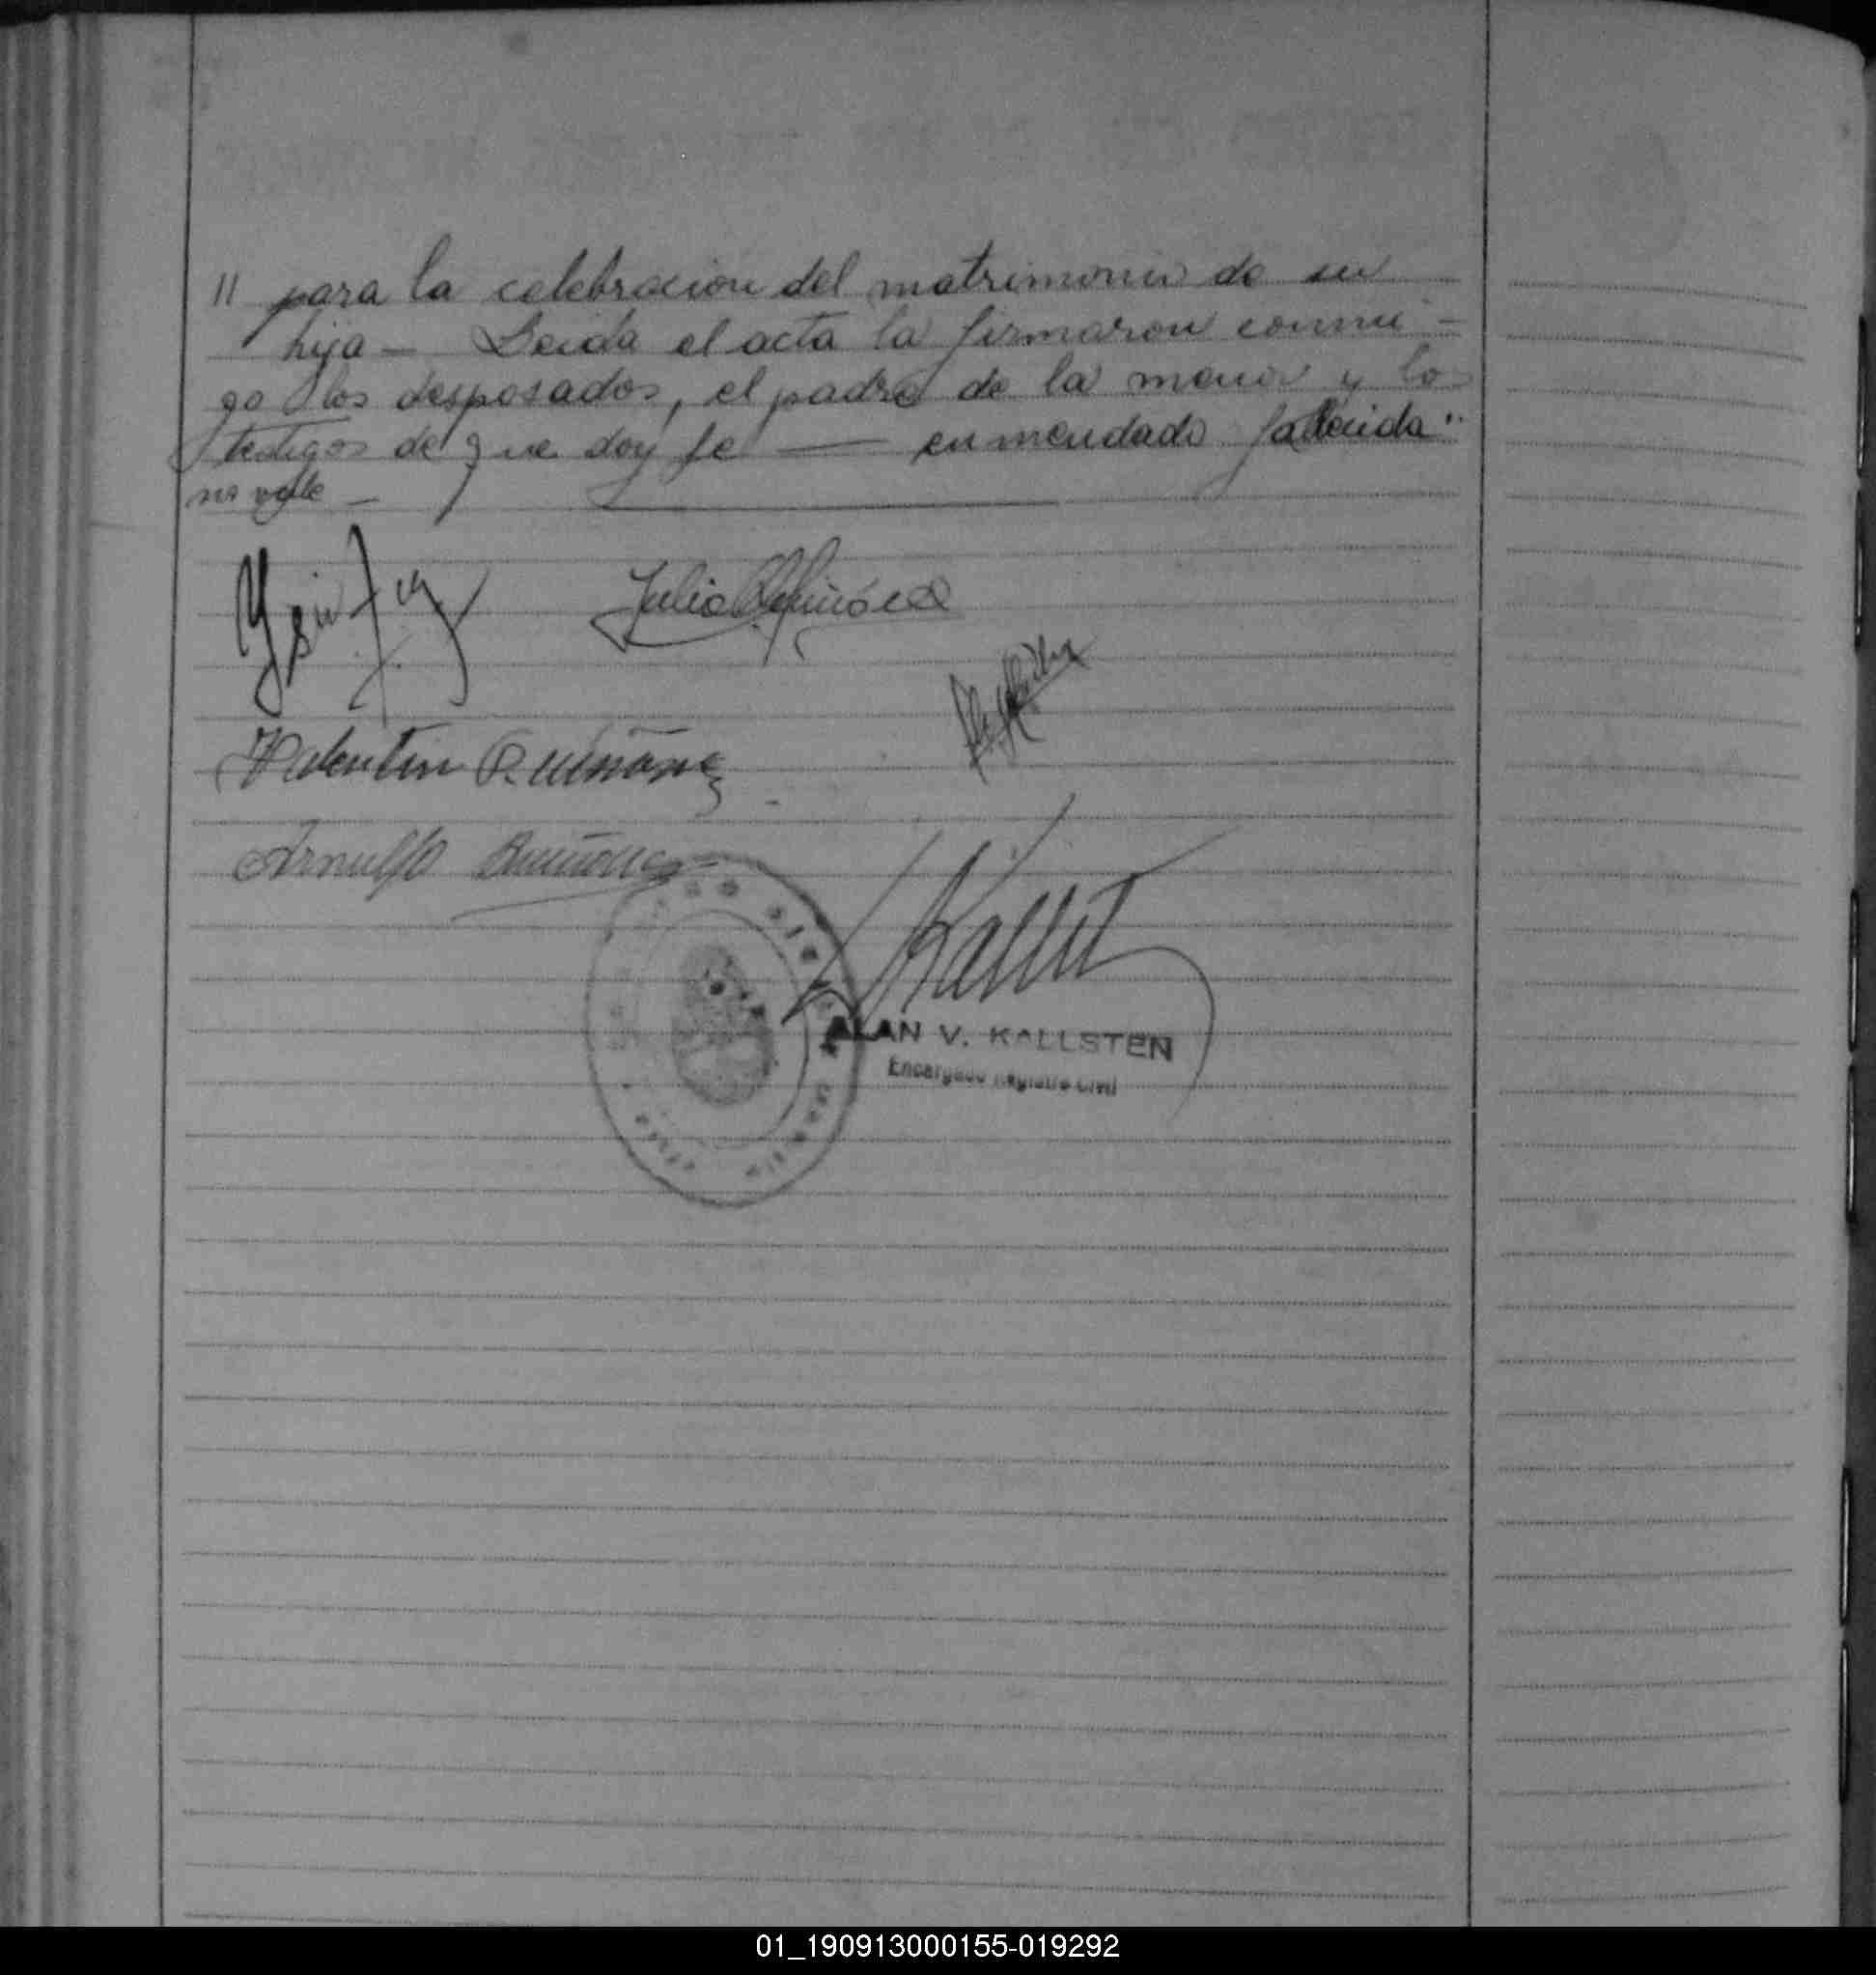 // para la celebracion del matrimonio de su
hija — Leida el acta la firmaron conmi -
go los desposados, el padre de la menor y los
testigos de que doy fe — enmendado fallecida"
no vale —
Julio Quiñónez
Valentin Quiñonez
Arnulfo Quiñonez
Kallst
ALAN V. KALLSTEN
Encargado Registro Civil
01_190913000155-019292